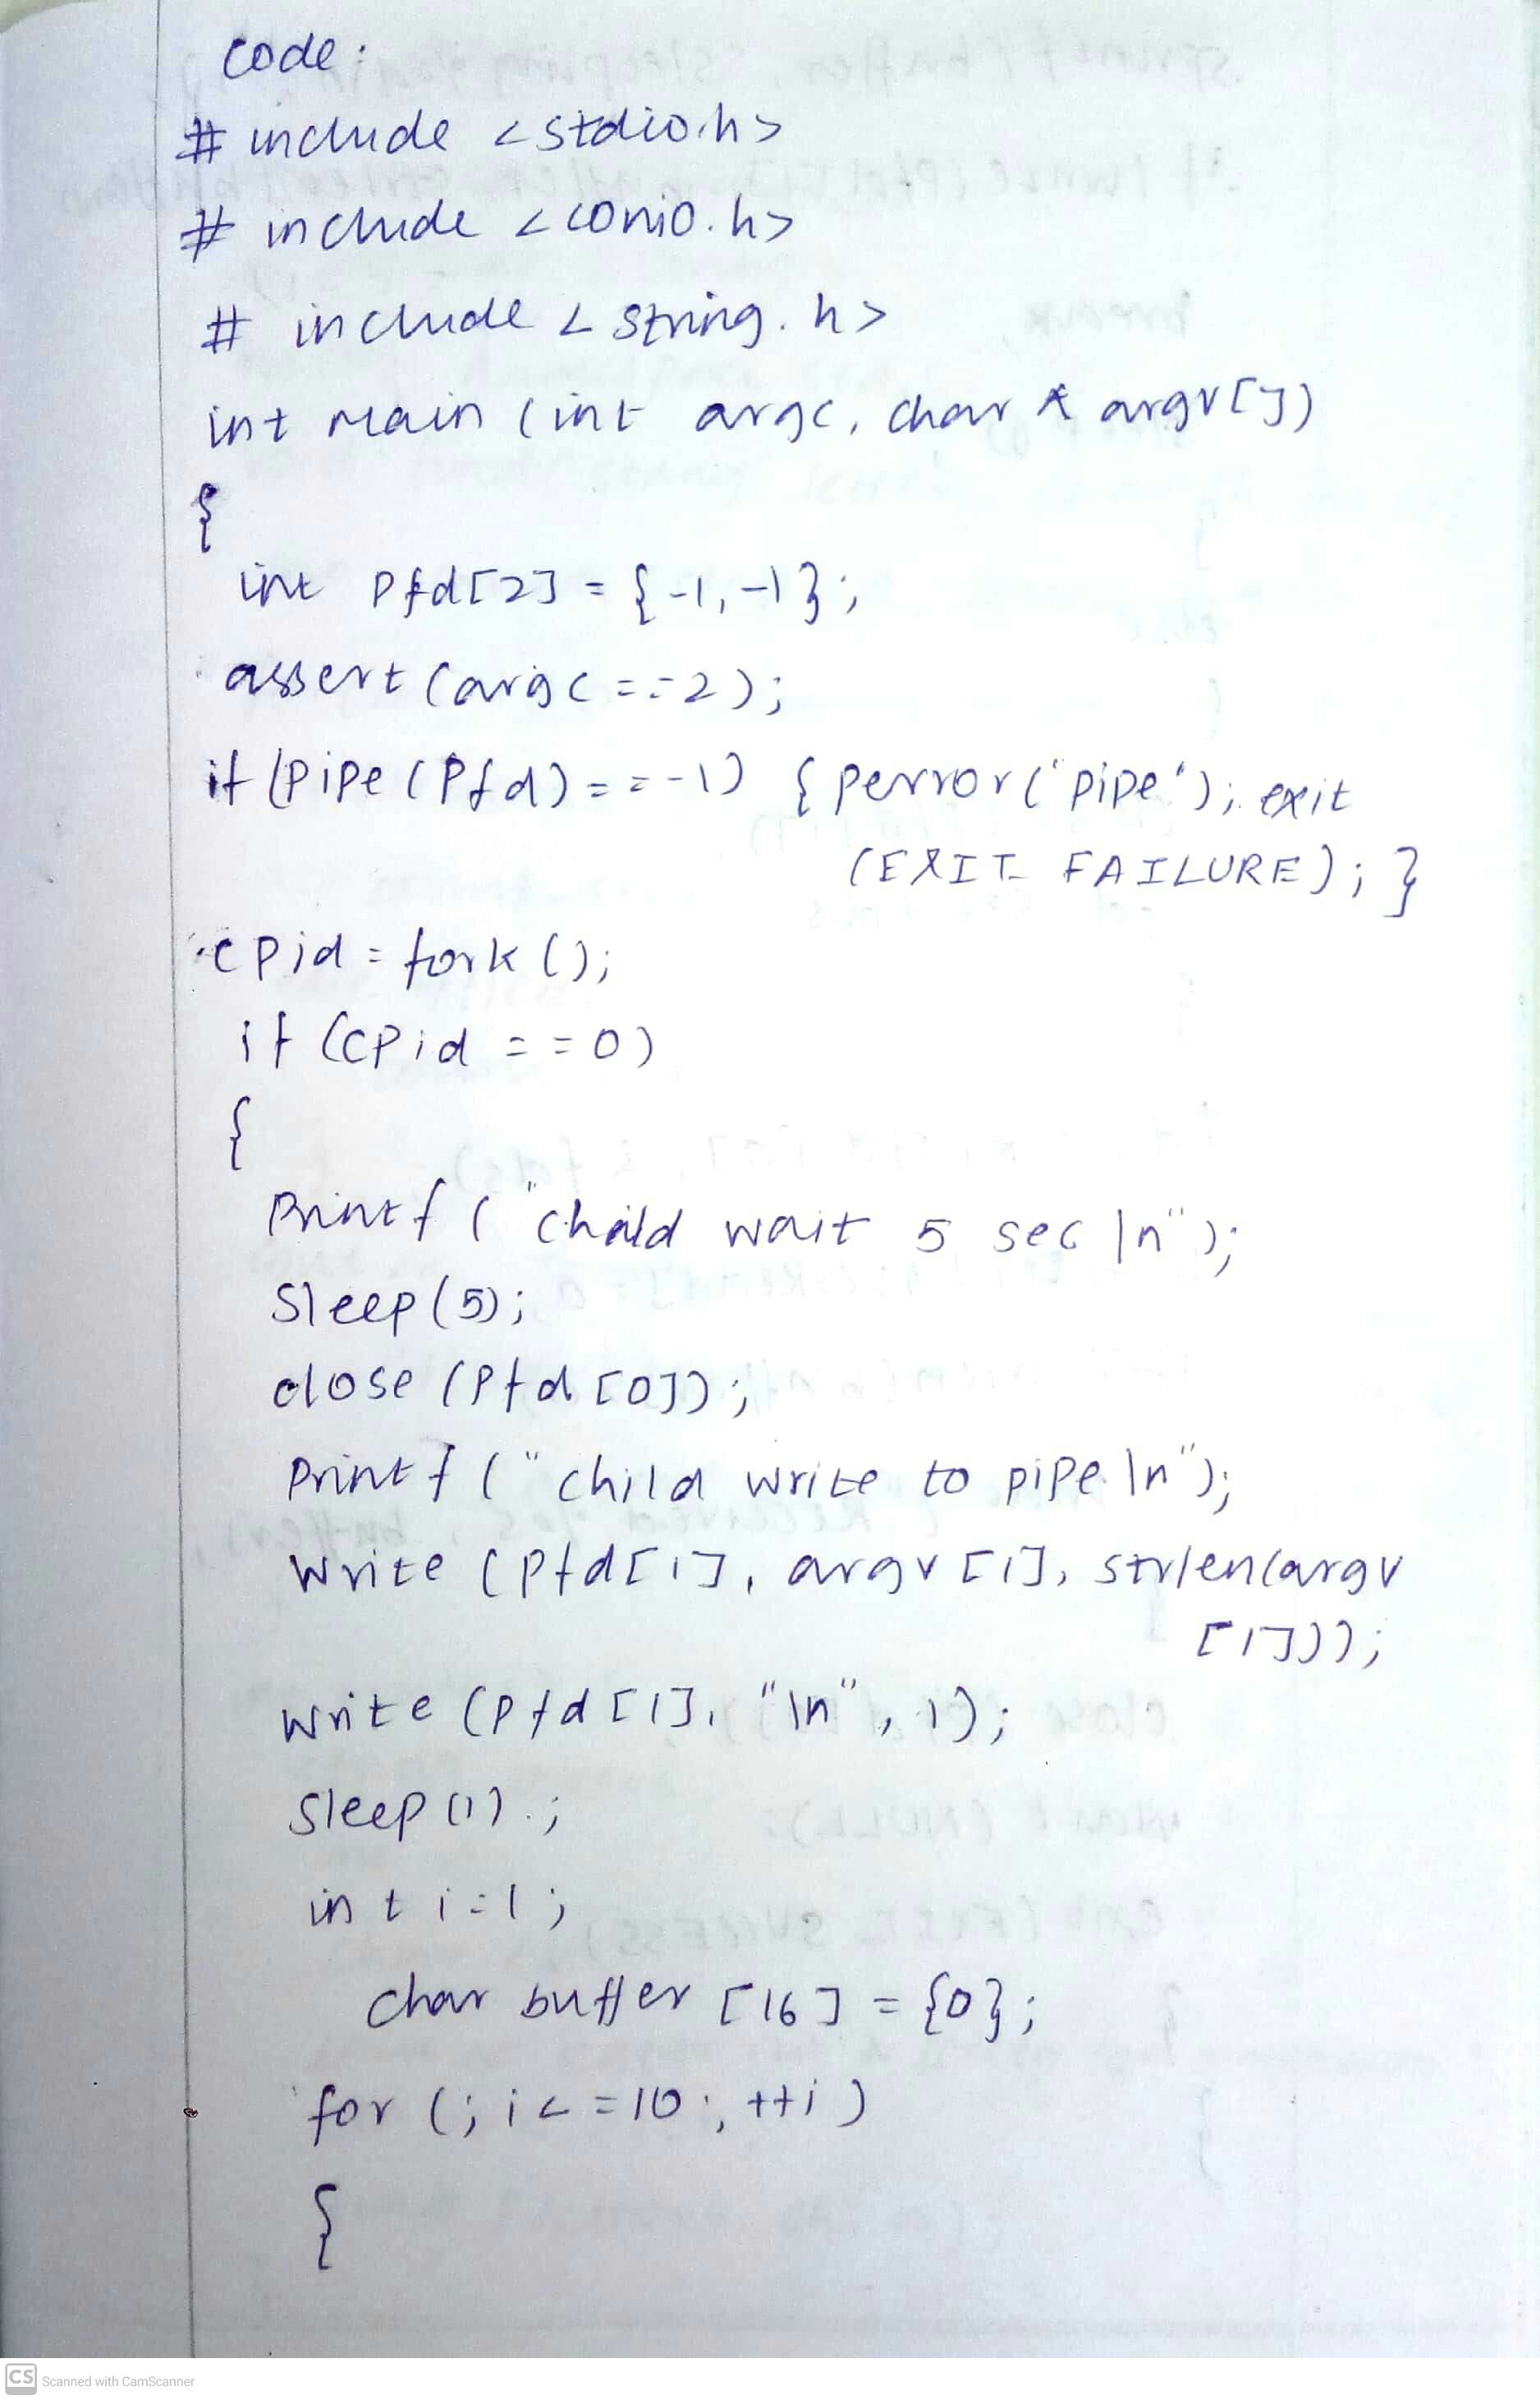 code:
# include <stdio.h>
# include <conio.h>
# include <string.h>
int main (int argc, char * argv[])
{
int pfd[2] = {-1,-1};
assert (argc ==2);
if (pipe (pfd) == -1) { perror("pipe"); exit
(EXIT_ FAILURE); }
cpid = fork ();
if (cpid ==0)
{
Printf ("child wait 5 sec \n");
Sleep (5);
close (pfd [0]);
Printf ("child write to pipe \n");
Write (pfd[1], argv [1], strlen(argv
[1]));
write (pfd [1], "\n", 1);
sleep (1) ;
int i=1;
char buffer [16] = {0};
for (; i<=10; ++i)
{
CS Scanned with CamScanner